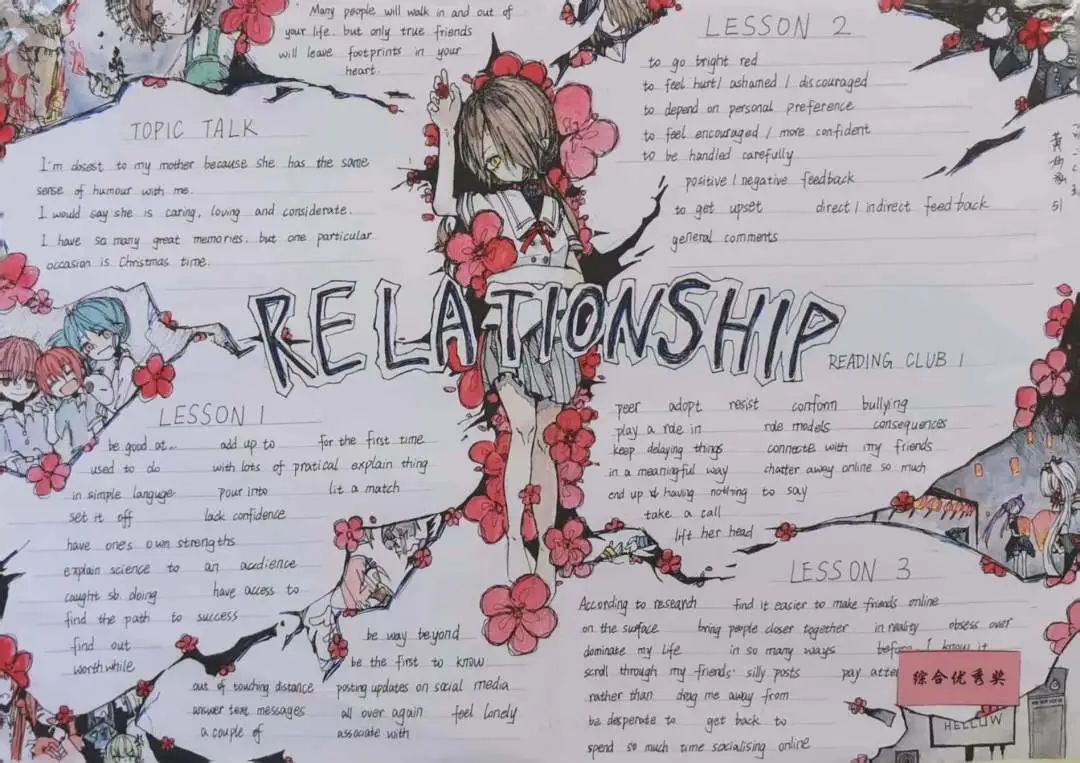 Many people will walk in and out of
your life. but only true friends
will leave footprints in your
heart.
TOPIC TALK
I'm closest to my mother because she has the same
sense of humour with me.
I would say she is caring, loving and considerate.
I have so many great memories. but one particular
occasion is Christmas time.
LESSON 2
to go bright red
to feel hurt / ashamed / discouraged
to depend on personal preference
to feel encouraged / more confident
to be handled carefully
positive / negative feedback
to get upset direct / indirect feedback
general comments
RELATIONSHIP
LESSON 1
be good at... add up to for the first time
used to do with lots of pratical explain thing
in simple languge pour into lit a match
set it off lack confidence
have one's own strengths
explain science to an audience
caught sb. doing have access to
find the path to success
find out
worthwhile
READING CLUB 1
peer adopt resist conform bullying
play a role in role models consequences
keep delaying things connecte with my friends
in a meaningful way chatter away online so much
end up having nothing to say
take a call
lift her head
be way beyond
be the first to know
out of touching distance posting updates on social media
answer text messages all over again feel lonely
a couple of associate with
LESSON 3
According to research find it easier to make friends online
on the surface bring people closer together in reality obsess over
dominate my life in so many ways before I know it
scroll through my friends' silly posts pay
rather than drag me away from
be desperate to get back to
spend so much time socialising online
综合优秀奖
HELLOW
51